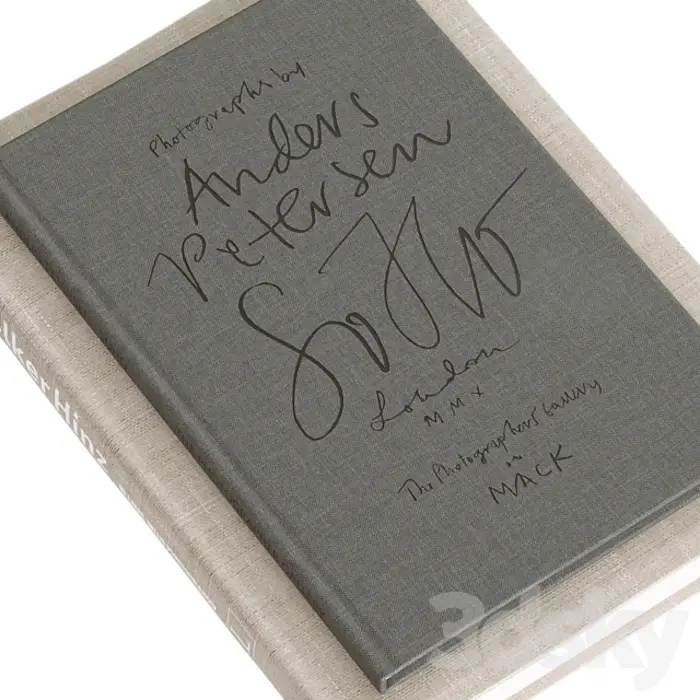 Photographs by
Anders
Petersen
SoHo
London
MMX
The Photographers' Gallery
MACK
lkerHinz
3dsky